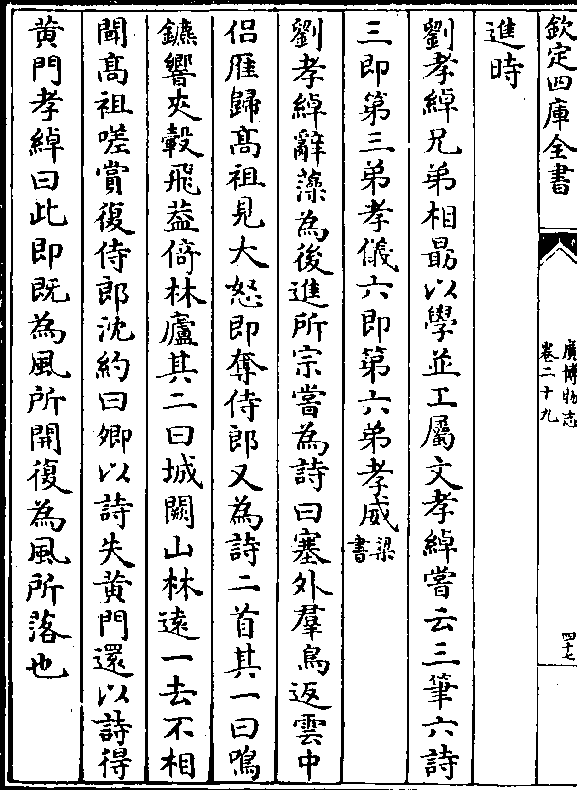 欽定四庫全書
廣博物志
卷二十九
四十七
進時
劉孝綽兄弟相朂以學並工屬文孝綽嘗云三筆六詩
三即第三弟孝儀六即第六弟孝威梁書
劉孝綽辭藻為後進所宗嘗為詩曰塞外羣鳥返雲中
侣雁歸髙祖見大怒即奪侍郎又為詩二首其一曰鳴
鑣響夾轂飛葢倚林廬其二曰城闕山林逺一去不相
聞髙祖嗟賞復侍郎沈約曰卿以詩失黄門還以詩得
黄門孝綽曰此即既為風所開復為風所落也